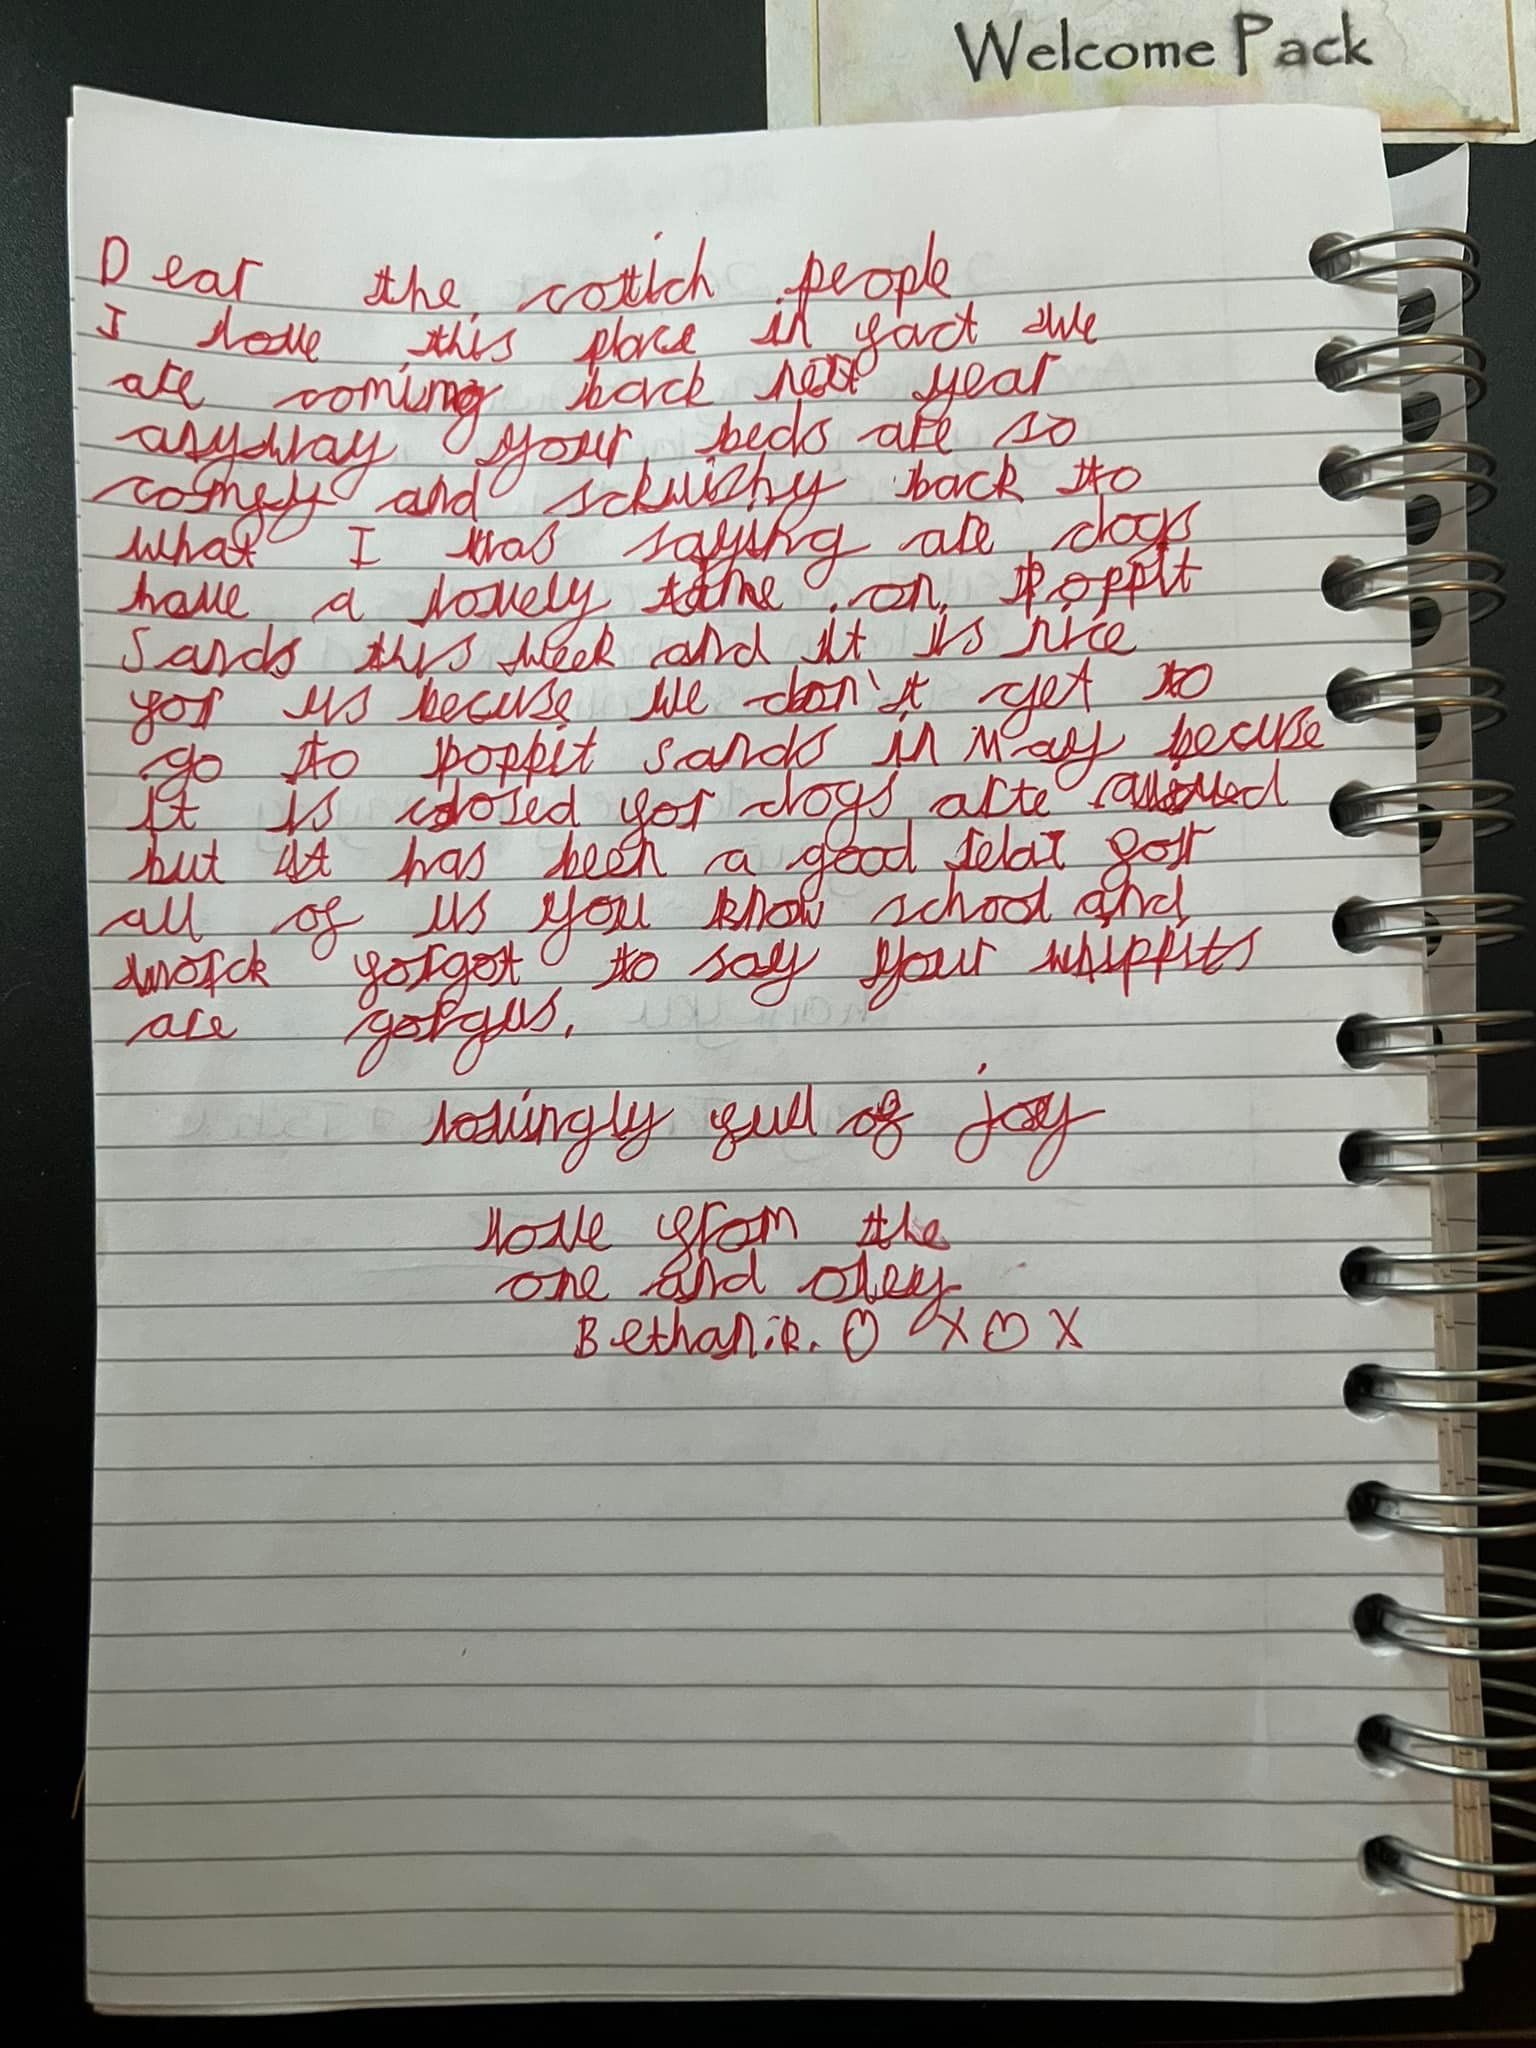 Welcome Pack
Dear the cottich people
I love this place in fact we
are coming back next year
anyway your beds are so
comfy and sckwishy back to
what I was saying are dogs
have a lovely time on Poppit
Sands this week and it is nice
for us becuse we don't get to
go to poppit sands in May becuse
it is closed for dogs arte
but it has been a good relax for
all of us you know school and
worck forgot to say your whippits
are gorgus.
lovingly full of joy
love from the
one and oley
Bethanie. O X O X